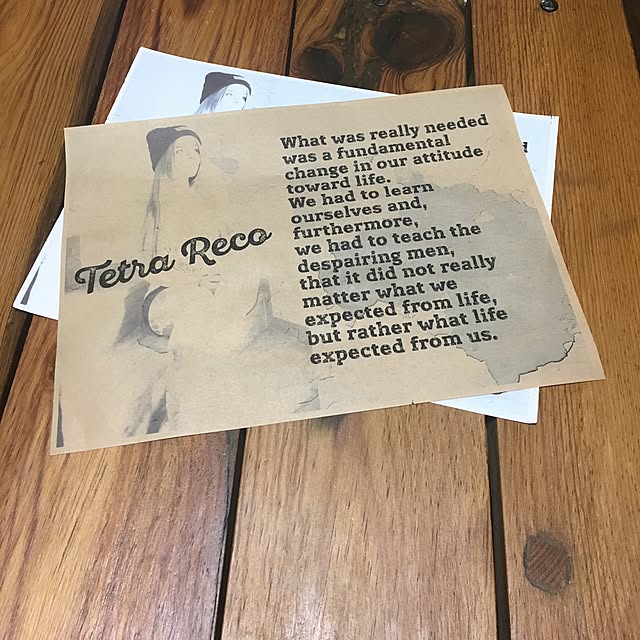 Tetra Reco
What was really needed
was a fundamental
change in our attitude
toward life.
We had to learn
ourselves and,
furthermore,
we had to teach the
despairing men,
that it did not really
matter what we
expected from life,
but rather what life
expected from us.